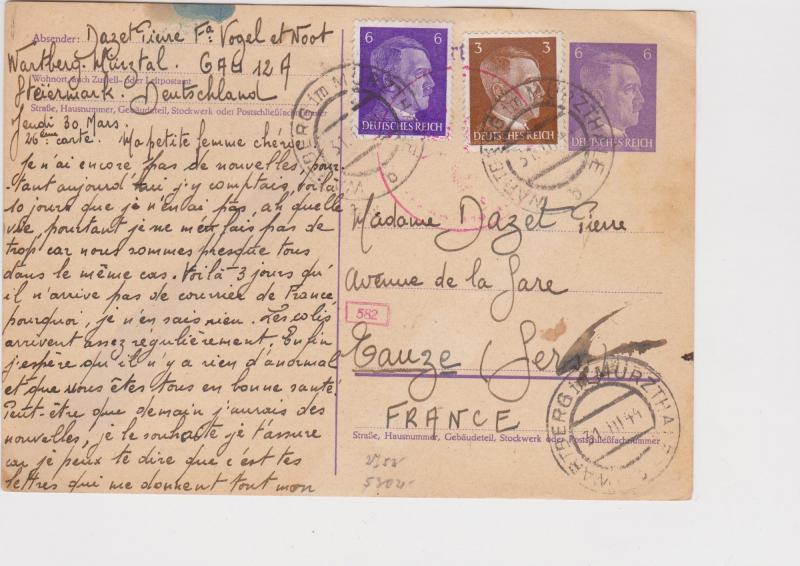 Absender: Dazet Pierre Fa Vogel et Noot
Wartberg. Mürztal. GAG 12A
Wohnort, auch Zustell- oder Leitpostamt
Steiermark. Deutschland
Straße, Hausnummer, Gebäudeteil, Stockwerk oder Postschließfachnummer
Jeudi 30 Mars.
26ème carte. Ma petite femme chérie
Je n'ai encore pas de nouvelles, pour-
tant aujourd'hui j'y comptais, voilà
10 jours que je n'en ai pas, ah quelle
vie, pourtant je ne m'en fais pas de
trop car nous sommes presque tous
dans le même cas. Voilà 3 jours qu'
il n'arrive pas de courrier de France,
pourquoi, je n'en sais rien. Les colis
arrivent assez régulièrement. Enfin
j'espère qu'il n'y a rien d'anormal
et que vous êtes tous en bonne santé
Peut-être que demain j'aurais des
nouvelles, je le souhaite je t'assure
car je peux te dire que c'est tes
lettres qui me donnent tout mon
6 6
DEUTSCHES REICH
3 3
DEUTSCHES REICH
6 6
DEUTSCHES REICH
WARTBERG im MÜRZTHALE
31.III.44
b
WARTBERG im MÜRZTHALE
31.III.44
b
Madame Dazet Pierre
Avenue de la Gare
582
Eauze (Gers)
FRANCE
Straße, Hausnummer, Gebäudeteil, Stockwerk oder Postschließfachnummer
WARTBERG im MÜRZTHALE
31.III.44